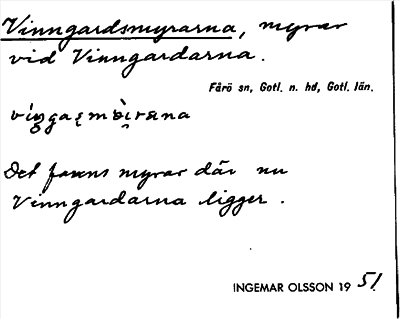 Vinngardsmyrarna, myrar
vid Vinngardarna.
Fårö sn, Gotl. n. hd, Gotl. län.
Det fanns myrar där nu
Vinngardarna ligger.
INGEMAR OLSSON 19 51.